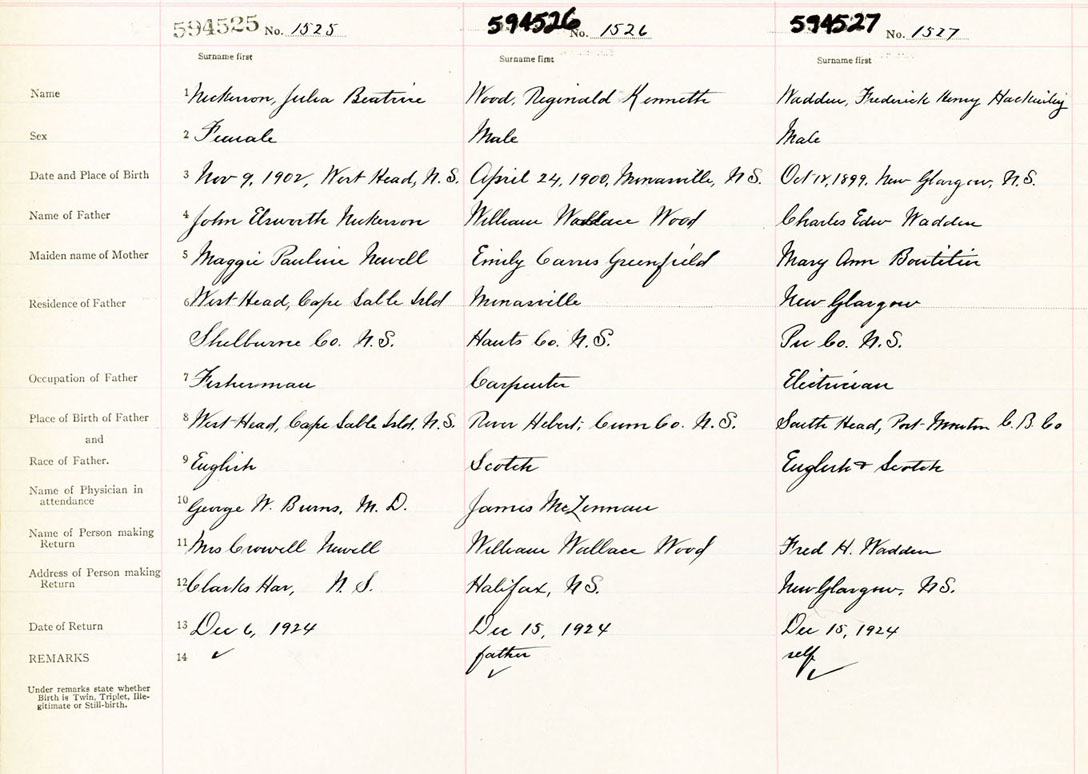 594525 No. 1525 594526 No. 1526 594527 No. 1527
Surname first Surname first Surname first
Name 1 Nickerson, Julia Beatrice Wood, Reginald Kenneth Wadden, Frederick Henry
Sex 2 Female Male Male
Date and Place of Birth 3 Nov 9, 1902, West Head, N.S. April 24, 1900, Minasville, N.S. Oct 18, 1899. New Glasgow, N.S.
Name of Father 4 John Elsworth Nickerson William Wallace Wood Charles Edw Wadden
Maiden name of Mother 5 Maggie Pauline Newell Emily Greenfield Mary Ann Boutilier
Residence of Father 6 West Head, Cape Sable Isld Minasville New Glasgow
Shelburne Co. N.S. Hants Co. N.S. Co. N.S.
Occupation of Father 7 Fisherman Carpenter Electrician
Place of Birth of Father 8 West Head, Cape Sable Isld. N.S. River Hebert, Cum Co. N.S. South Head, Port Morien C.B. Co
and
Race of Father. 9 English Scotch English & Scotch
Name of Physician in
attendance 10 George W. Burns, M.D. James McLennan
Name of Person making
Return 11 Mrs Crowell Newell William Wallace Wood Fred H. Wadden
Address of Person making
Return 12 Clarks Har, N.S. Halifax, N.S. New Glasgow, N.S.
Date of Return 13 Dec 6, 1924 Dec 15, 1924 Dec 15, 1924
REMARKS 14 ✓ father ✓ self ✓
Under remarks state whether
Birth is Twin, Triplet, Ille-
gitimate or Still-birth.